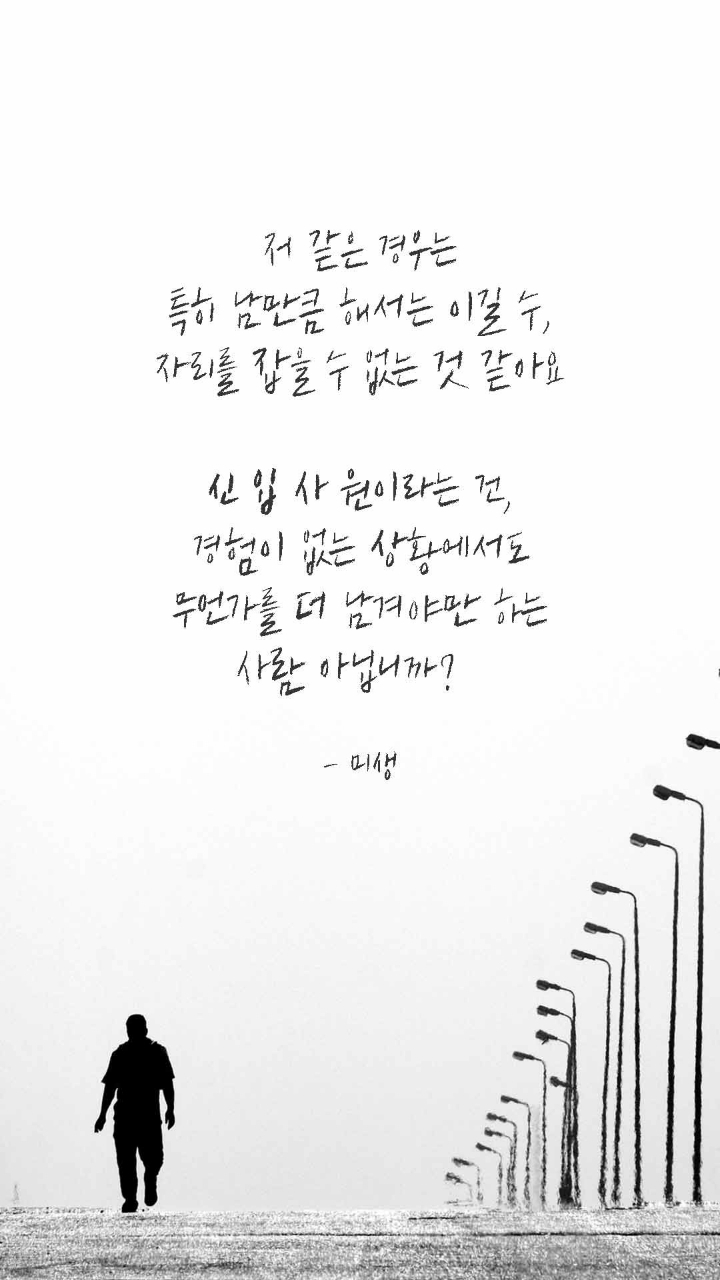 저 같은 경우는
특히 남만큼 해서는 이길 수,
자리를 잡을 수 없는 것 같아요
신입사원이라는 건,
경험이 없는 상황에서도
무언가를 더 남겨야만 하는
사람 아닙니까?
- 미생